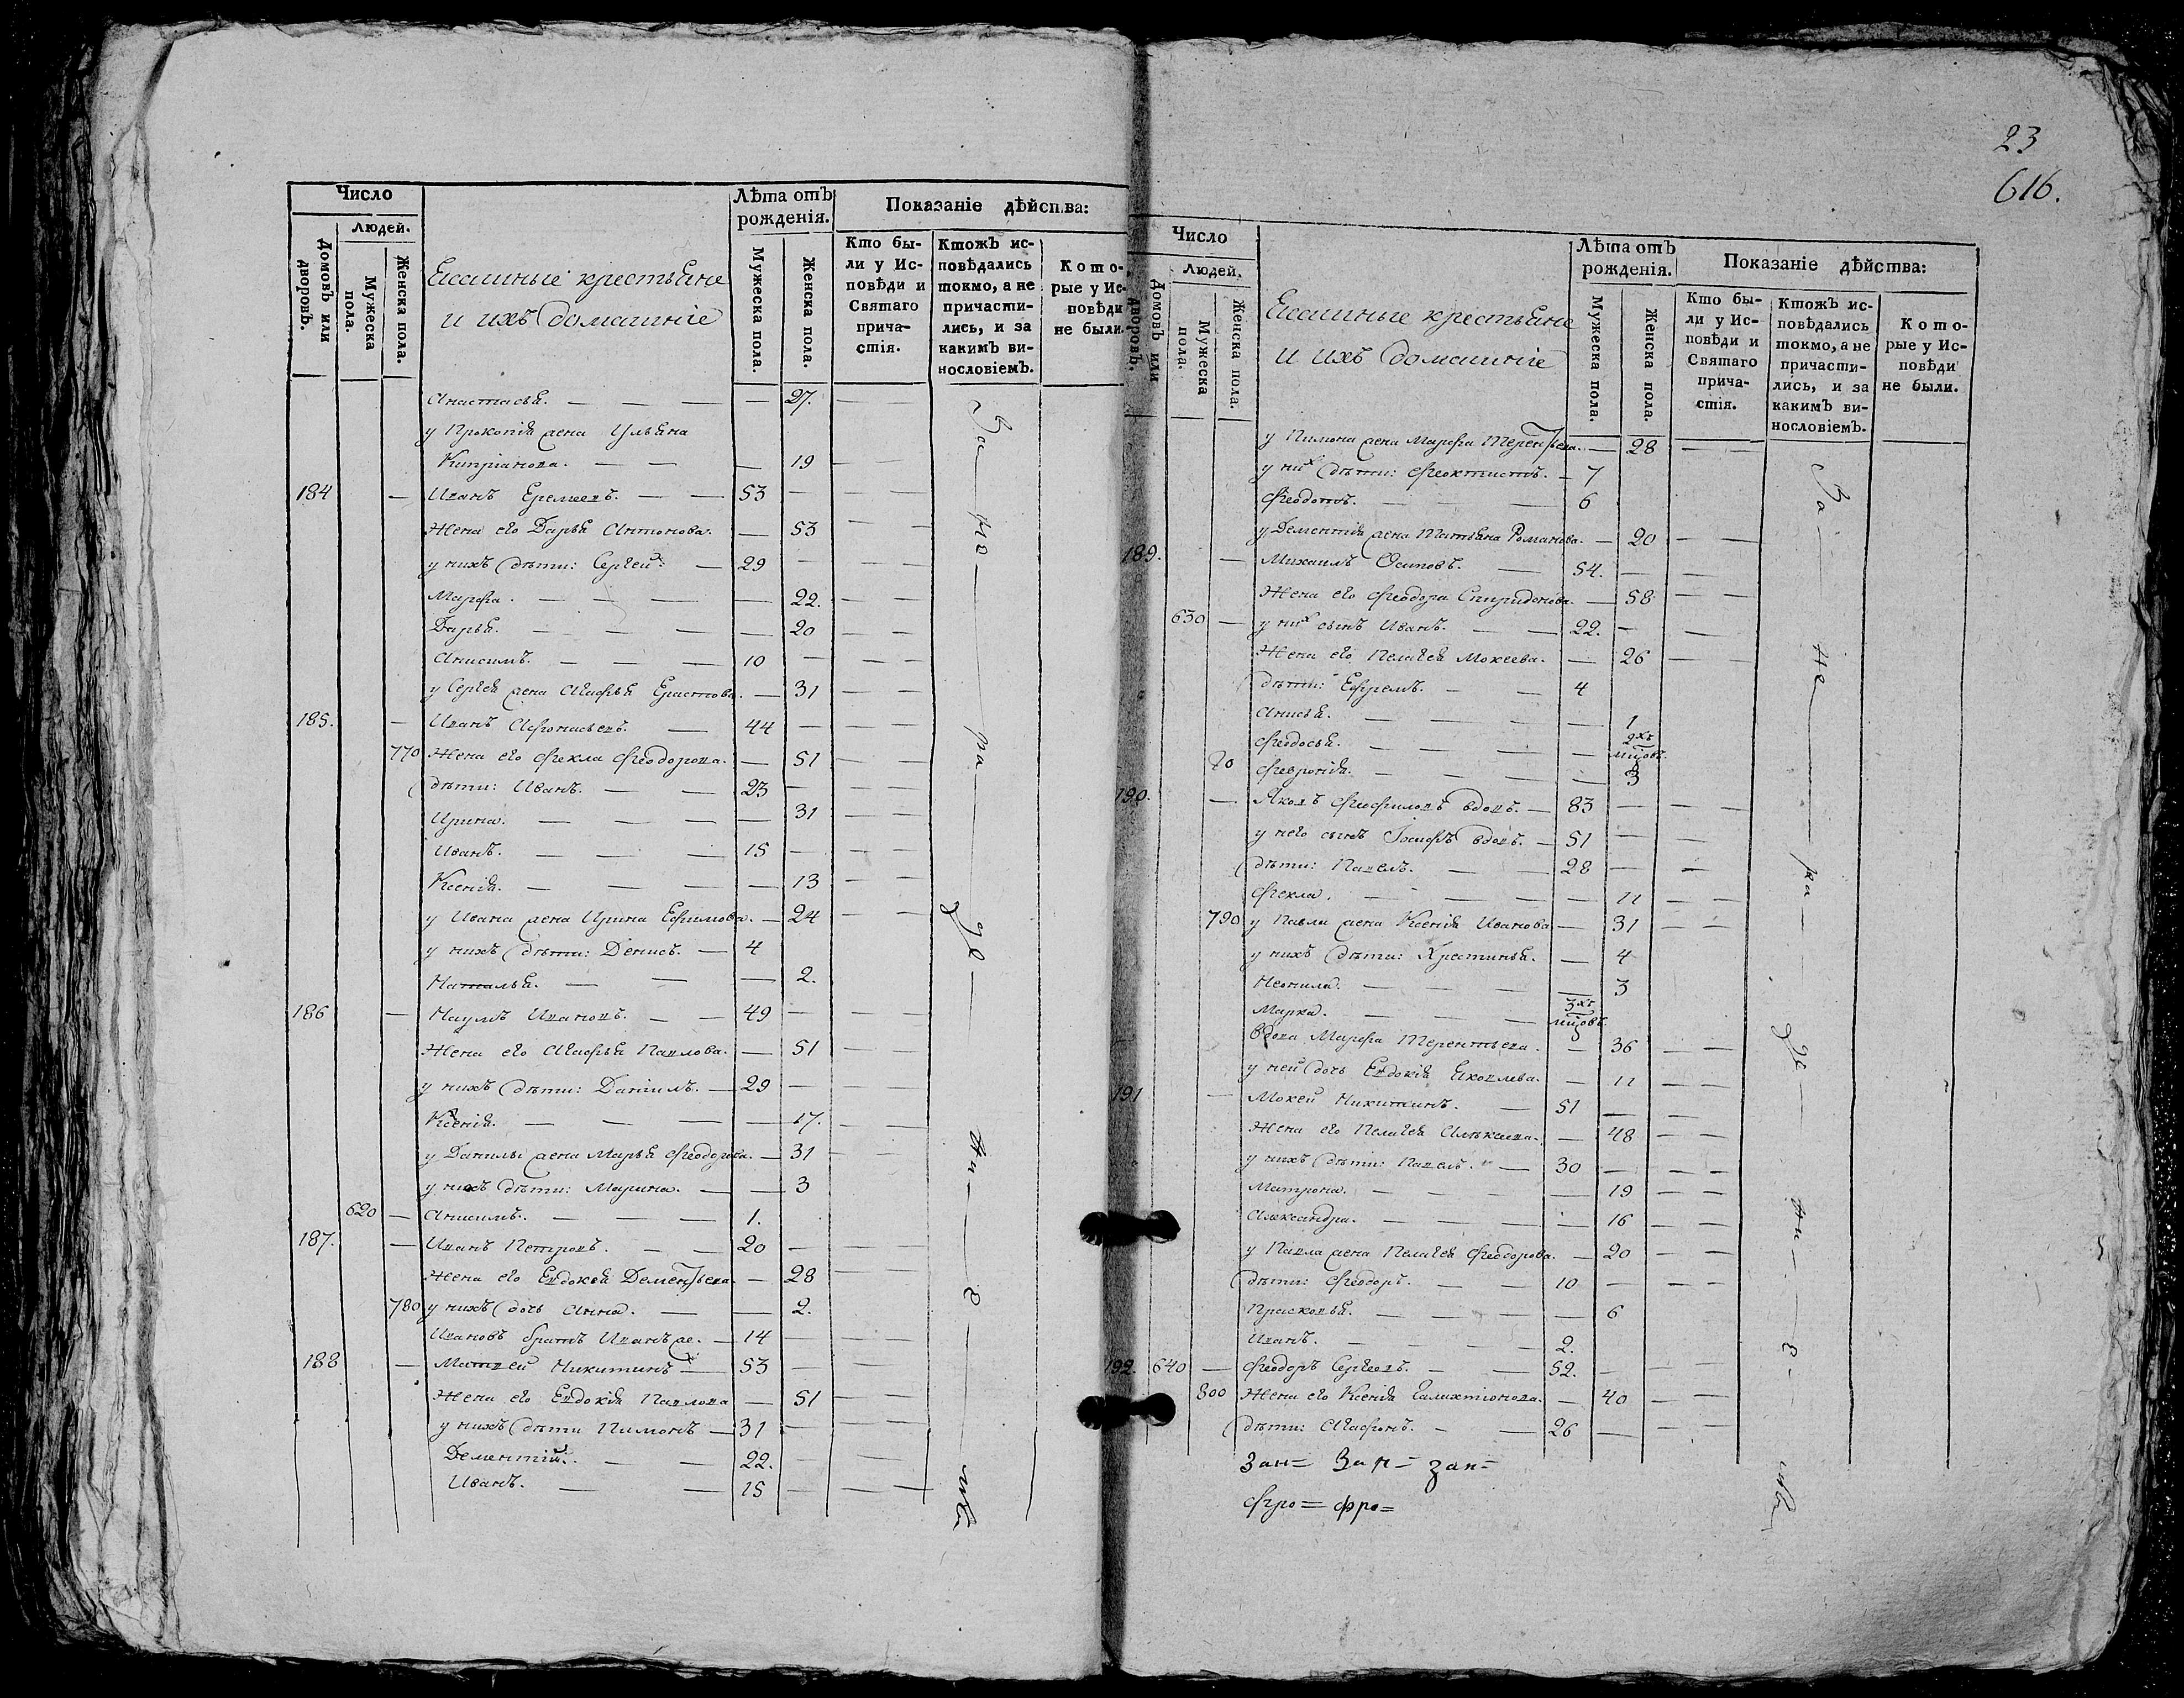 Число
Людей.
Домовъ или дворовъ.
Мужеска пола.
Женска пола.
крестьяне
и ихъ домашніе
Лѣта отъ рожденія.
Мужеска пола.
Женска пола.
Показаніе дѣйства:
Кто были у Исповѣди и Святаго причастія.
Ктожъ исповѣдались токмо, а не причастились, и за какимъ винословіемъ.
Которые у Исповѣди не были.
Анастасья. — — — — 27.
у Прокопія жена Ульяна
Кипріанова. — — — 19
184 — Иванъ Еремеевъ. — — 53
Жена его Дарья Антонова. — 53
у нихъ дѣти: Сергей. — 29
Марфа. — — — — 22.
Дарья. — — — — 20
Анисимъ. — — — 10
у Сергея жена Агафья Ерастова. — 31
185. — Иванъ Афонасьевъ. — 44
770 Жена его Фекла Феодорова. — 51
дѣти: Иванъ. — — 23
Ирина. — — — — 31
Иванъ. — — — 15
Ксенія. — — — — 13
у Ивана жена Ирина Ефимова. — 24
у нихъ дѣти: Денисъ. — 4
Наталья. — — — 2.
186 — Наумъ Ивановъ. — — 49
Жена его Агафья Павлова. — 51
у нихъ дѣти: Даніилъ. — 29
Ксенія. — — — — 17.
у Данилы жена Марья Феодорова. — 31
у нихъ дѣти: Марина. — — 3
620 — Анисимъ. — — — 1.
187. — Иванъ Петровъ. — — 20
Жена его Евдокея Дементьева. — 28
780 у нихъ дочь Анна. — — 2.
Ивановъ братъ Иванъ же. — 14
188 — Матвей Никитинъ — 53
Жена его Евдокія Павлова — 51
у нихъ дѣти Пимонъ — 31
Дементій. — — 22.
Иванъ. — — 15
За не ра де ни е мъ
23
616.
Число
Людей.
Домовъ или дворовъ.
Мужеска пола.
Женска пола.
крестьяне
и ихъ домашніе
Лѣта отъ рожденія.
Мужеска пола.
Женска пола.
Показаніе дѣйства:
Кто были у Исповѣди и Святаго причастія.
Ктожъ исповѣдались токмо, а не причастились, и за какимъ винословіемъ.
Которые у Исповѣди не были.
у Пимона жена Марфа Терентьева. — 28
у них дѣти: Феоктистъ. — 7
Феодотъ. — — — 6
у Дементія жена Татьяна Романова. — 20
189. — Михаилъ Осиповъ. — 54.
Жена его Феодора Спиридонова. — 58
630 — у них сынъ Иванъ. — — 22.
Жена его Пелагея Мокеева. — 26
дѣти: Ефремъ. — — 4
Анисья. — — — — 1
Феодосья. — — — — 2хъ мцовъ.
Феврониѣ. — — — — 3
190. — Яковъ Феофиловъ вдовъ. — 83
у него сынъ Іосифъ вдовъ. — 51
дѣти: Павелъ. — — 28
Фекла. — — — — 11
790 у Павла жена Ксенія Иванова — 31
у нихъ дѣти: Хрестинья. — 4
Неонила. — — — — 3
Марка. — — — 3хъ мцовъ.
вдова Марфа Терентьева. — 36
у ней дочь Евдокія Яковлева. — 11
191 — Мокей Никитинъ. — 51
Жена его Пелагея Алексеева. — 48
у нихъ дѣти: Павелъ. — 30
Матрона. — — — — 19
Александра. — — — — 16
у Павла жена Пелагея Феодорова. — 20
дѣти: Феодоръ. — — 10
Прасковья. — — — — 6
Иванъ. — — — 2.
192. 640 — Феодоръ Сергеевъ. — — 52.
800 Жена его Ксенія Галихтіонова. — 40
дѣти: Агафонъ. — — 26
За не ра де ни е мъ
Зан= Зан= зан=
Фро= фро=